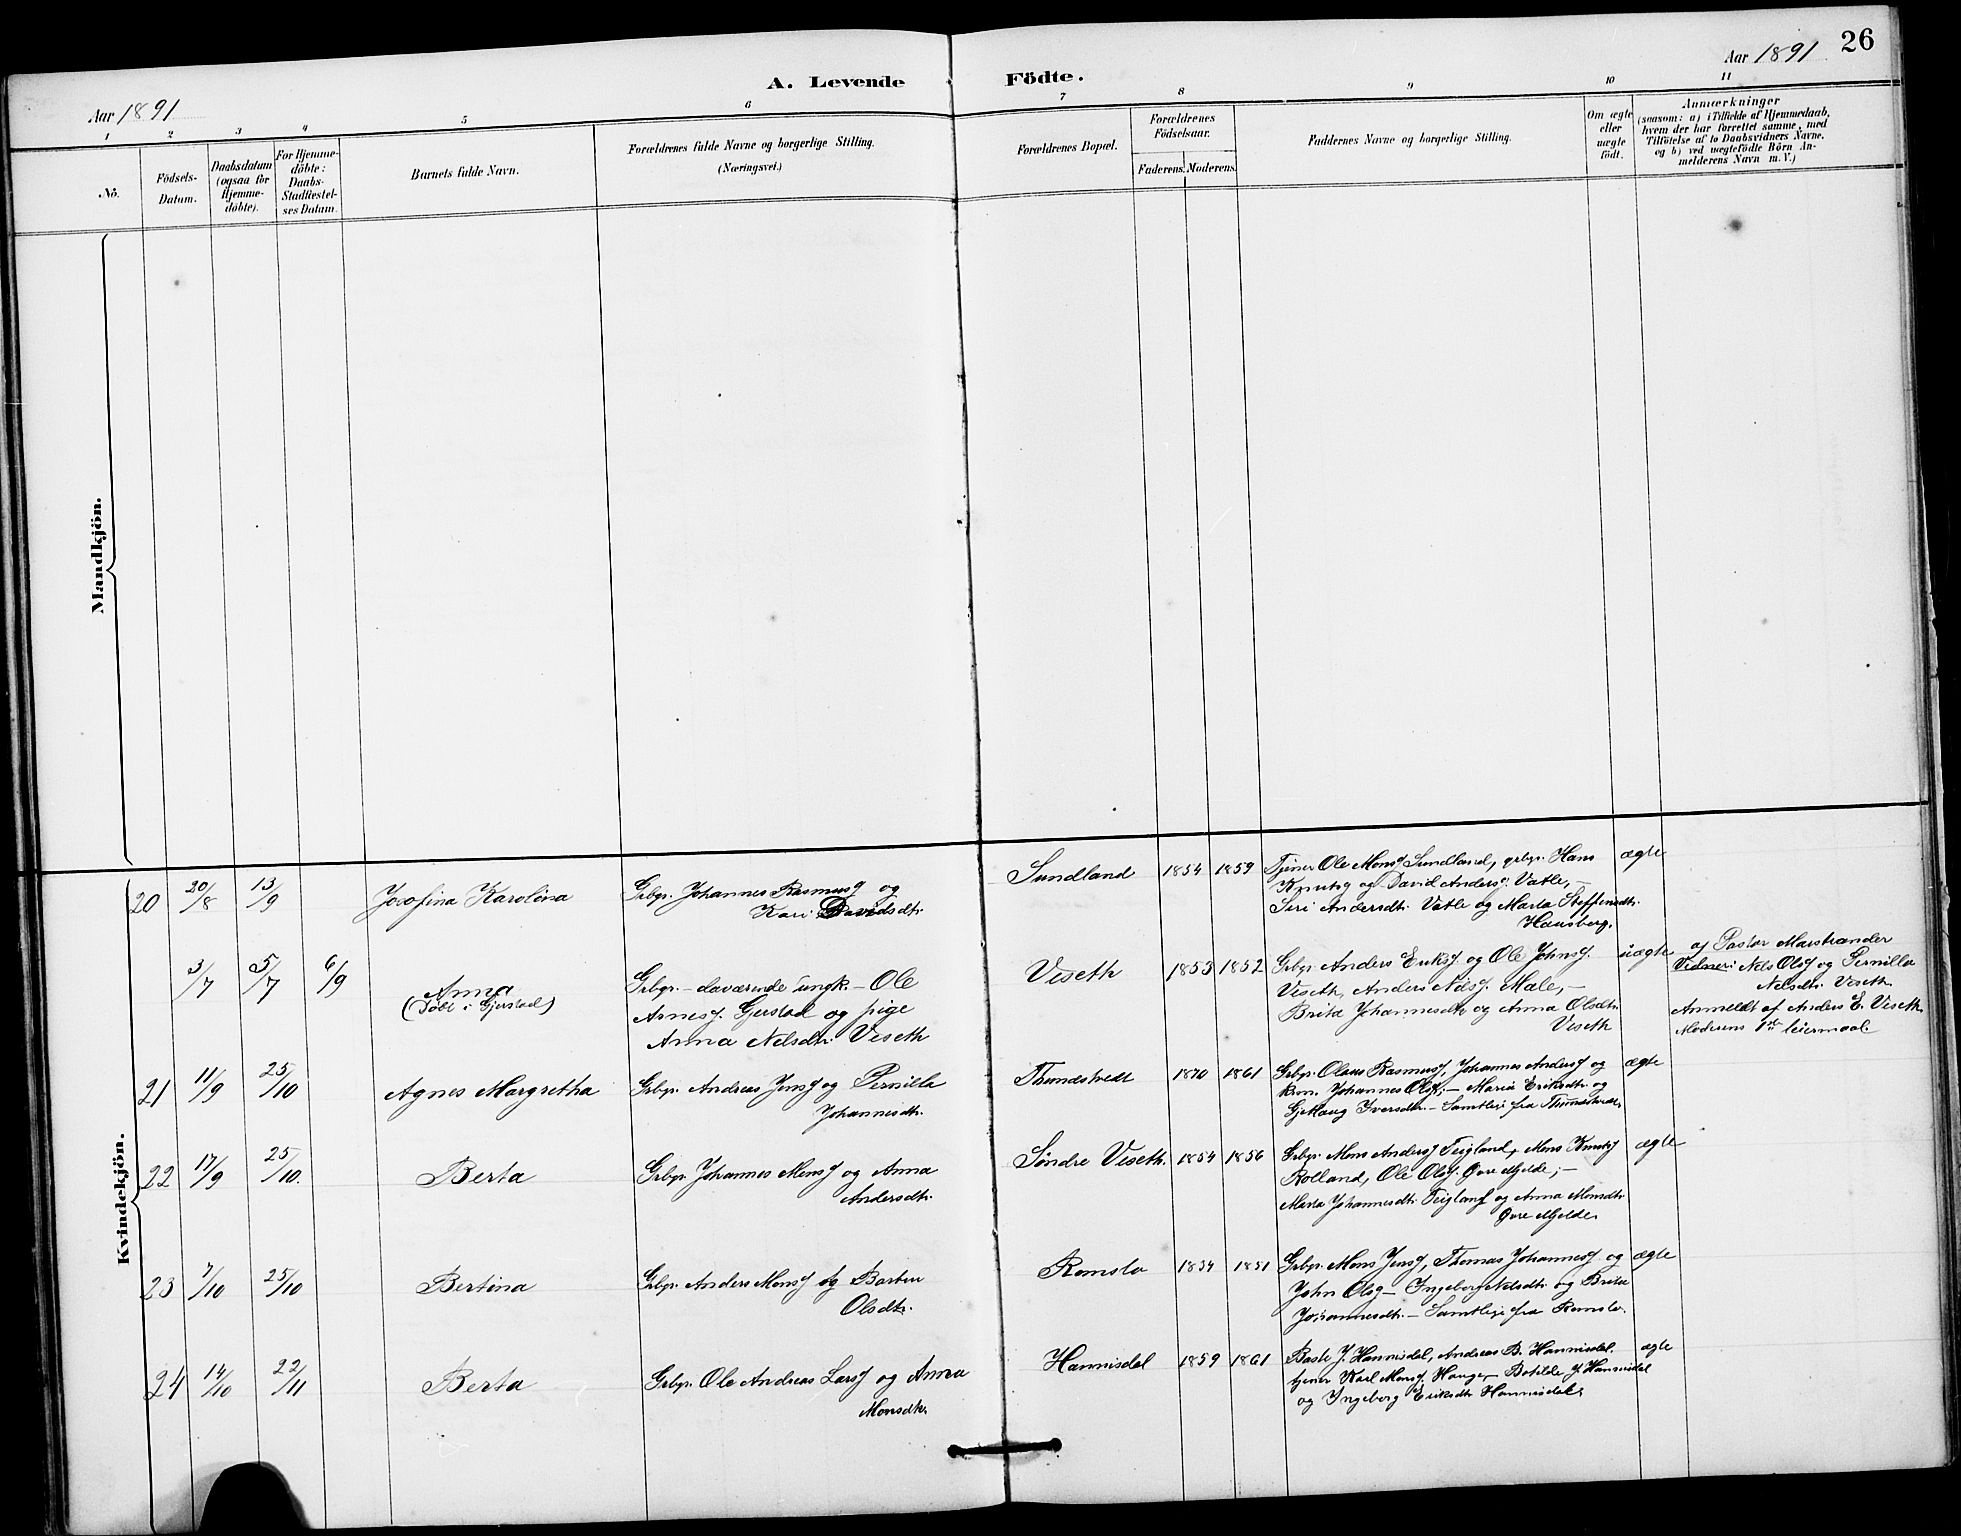 26
Aar 1891
A. Levende Födte.
Aar 1891
1 2 3 4 5 6 7 8 9 10 11
No.
Födsels-
Datum.
Daabsdatum
(ogsaa for
Hjemme-
döbte).
For Hjemme-
döbte:
Daabs-
Stadfæstel-
ses Datum.
Barnets fulde Navn.
Forældrenes fulde Navne og borgerlige Stilling.
(Næringsvei.)
Forældrenes Bopæl.
Forældrenes
Födselsaar.
Faderens. Moderens.
Faddernes Navne og borgerlige Stilling.
Om ægte
eller
uægte
födt.
Anmærkninger
(saasom: a) i Tilfælde af Hjemmedaab,
hvem der har forrettet samme, med
Tilföielse af to Daabsvidners Navne,
og b) ved uægtefödte Börn An-
melderens Navn m.V.)
Mandkjön.
Kvindekjön.
20 20/8 13/9
Josefina Karolina
Grbgr. Johannes Rasmusſ og
Kari Davidsdtr.
Sundland 1854 1859
Tjener Ole Monsſ Sundland, grbgr. Hans
Knutsſ og David Andersſ. Vatle, -
Siri Andersdtr. Vatle og Marta Steffensdtr.
Hausberg.
ægte
3/7 5/7 6/9
Anna
(Døbt i Gjerstad)
Grbgr. - daværende ungk. - Ole
Arnesſ. Gjerstad og pige
Anna Nelsdtr. Veseth
Veseth 1853 1852
Grbgr. Anders Eriksſ. og Ole Johnsſ.
Veseth, Anders Nilsſ. Mæle, -
Brita Johannesdtr og Anna Olsdtr.
Veseth
uægte
af Pastor Maristrander
Vidner: Nels Olsſ og Pernilla
Nelsdtr. Veseth.
Anmeldt af Anders E. Veseth.
Moderens 1ste leiermaal.
21 11/9 25/10
Agnes Margretha
Grbgr. Andreas Jensſ og Pernilla
Johannesdtr.
Thunestvedt 1870 1861
Grbgr. Olaus Rasmusſ, Johannes Andersſ og
Johannes Olsſ; - Maria Eriksdtr. og
Gjertaug Iversdtr. - Samtlige fra Thunestvedt.
ægte
22 17/9 25/10.
Berta
Grbgr. Johannes Monsſ og Anna
Andersdtr.
Søndre Veseth. 1854 1856
Grbgr. Mons Andersſ Teigland, Mons Knutsſ
Rolland, Ole Olsſ. Øvre Mjelde; -
Marta Johannesdtr. Teigland og Anna Monsdtr.
Øvre Mjelde.
ægte
23 7/10 25/10
Bertina
Grbgr. Anders Monsſ og Barbru
Olsdtr.
Romslo 1834 1851
Grbgr. Mons Jensſ, Thomas Johannesſ. og
John Olsſ - Ingeborg Nelsdtr. og Brita
Johannesdtr. - Samtlige fra Romslo.
ægte
24 14/10 22/11
Berta
Grbgr. Ole Andreas Larsſ og Anna
Monsdtr.
Hannisdal 1859 1861
Baste J. Hannisdal, Andreas B. Hannisdal,
tjener Karl Monsſ. Hauge, - Botilde J. Hannisdal
og Ingeborg Eriksdtr Hannisdal.
ægte